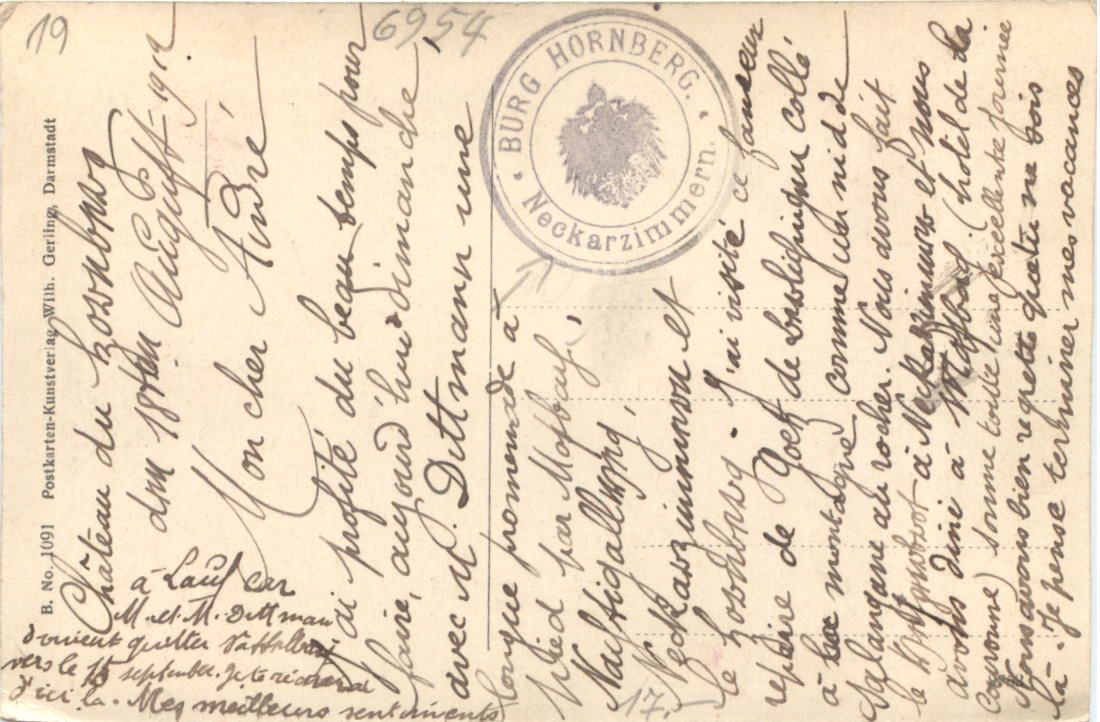 19
6954
BURG HORNBERG.
Neckarzimmern.
B. No. 1091 Postkarten-Kunstverlag Wilh. Gerling, Darmstadt
Château du Hornberg
den 18ten August 1912
Mon cher André
J'ai profité du beau temps pour
faire, aujourd'hui dimanche
avec M. Dittmann une
longue promenade à
pied par Mosbach,
Nachtigallweg,
Neckarzimmern et
le Hornberg. J'ai visité ce fameux
repaire de Goetz de Berlichingen collé
à la montagne comme un nid de
au rocher. Nous avons fait
le à Neckarzimmern et nous
avons diné à Mosbach (hôtel de la
Couronne) somme toute une excellente journée
Nous avons bien regretté que tu ne sois
là. Je pense terminer mes vacances
à Lauf car
M. et M. Dittmann
doivent quitter
vers le 15 septembre. Je te
d'ici là. Mes meilleurs sentiments
17.-